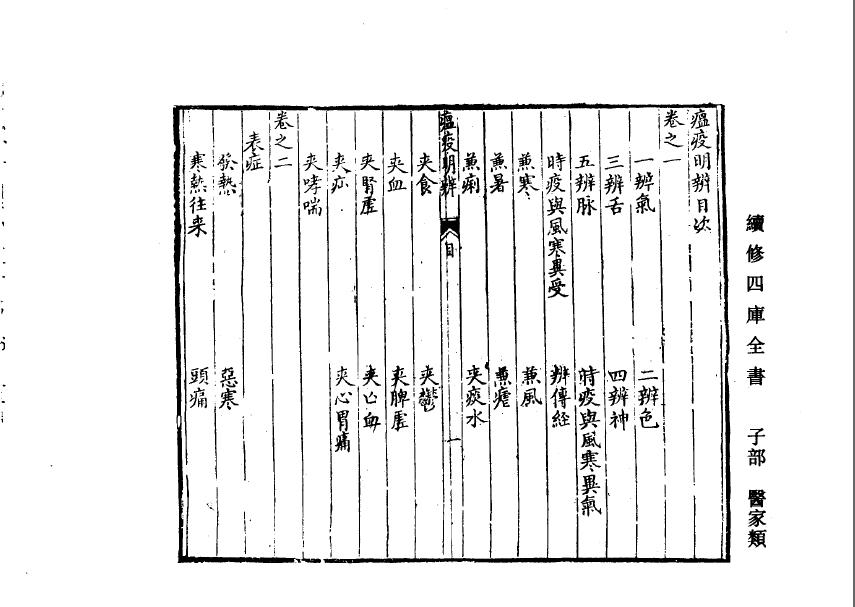 續修四庫全書 子部 醫家類
瘟疫明辨目次
卷之一
一辨氣 二辨色
三辨舌 四辨神
五辨脉 時疫與風寒異氣
時疫與風寒異受 辨傳經
兼寒 兼風
兼暑 兼瘧
兼痢 夾痰水
瘟疫明辨 目 一
夾食 夾鬱
夾血 夾脾虛
夾腎虛 夾亡血
夾疝 夾心胃痛
夾哮喘
卷之二
表症
發熱 惡寒
寒熱往来 頭痛